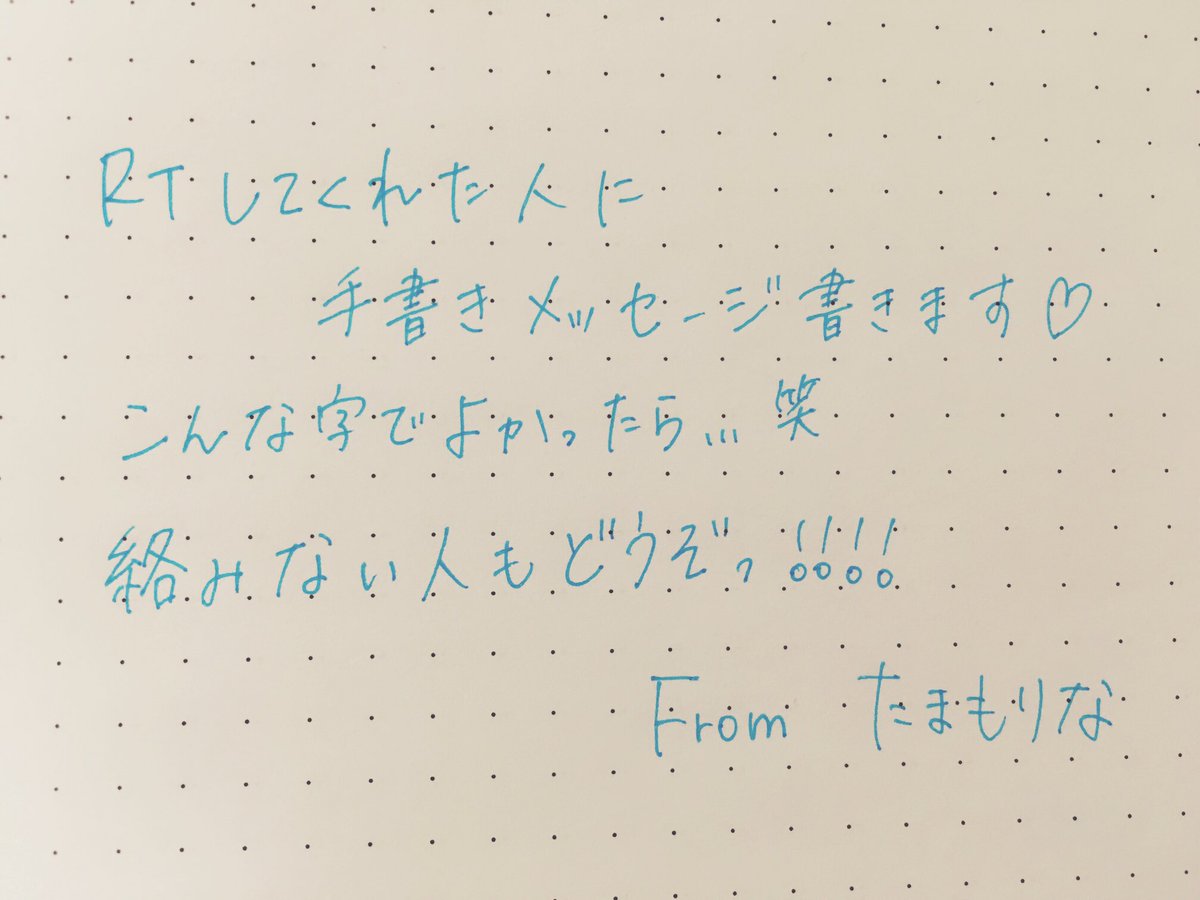 RTしてくれた人に
手書きメッセージ書きます♡
こんな字でよかったら... 笑
絡みない人もどうぞっ!!!!
From たまもりな